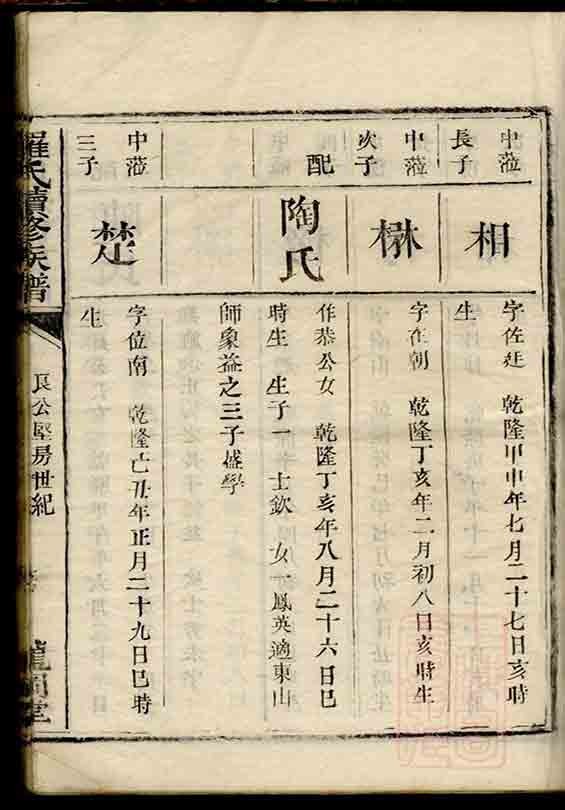 中蒞
長子
相
字佐廷 乾隆甲申年七月二十七日亥時
生
中蒞
次子
楙
字在朝 乾隆丁亥年二月初八日亥時生
配
陶氏
作恭公女 乾隆丁亥年八月二十六日巳
時生 生子一 士欽 女一鳳英適東山
師象益之三子盛學
中蒞
三子
楚
字位南 乾隆亡丑年正月二十九日巳時
生
羅氏續修族譜
良公堅房世紀